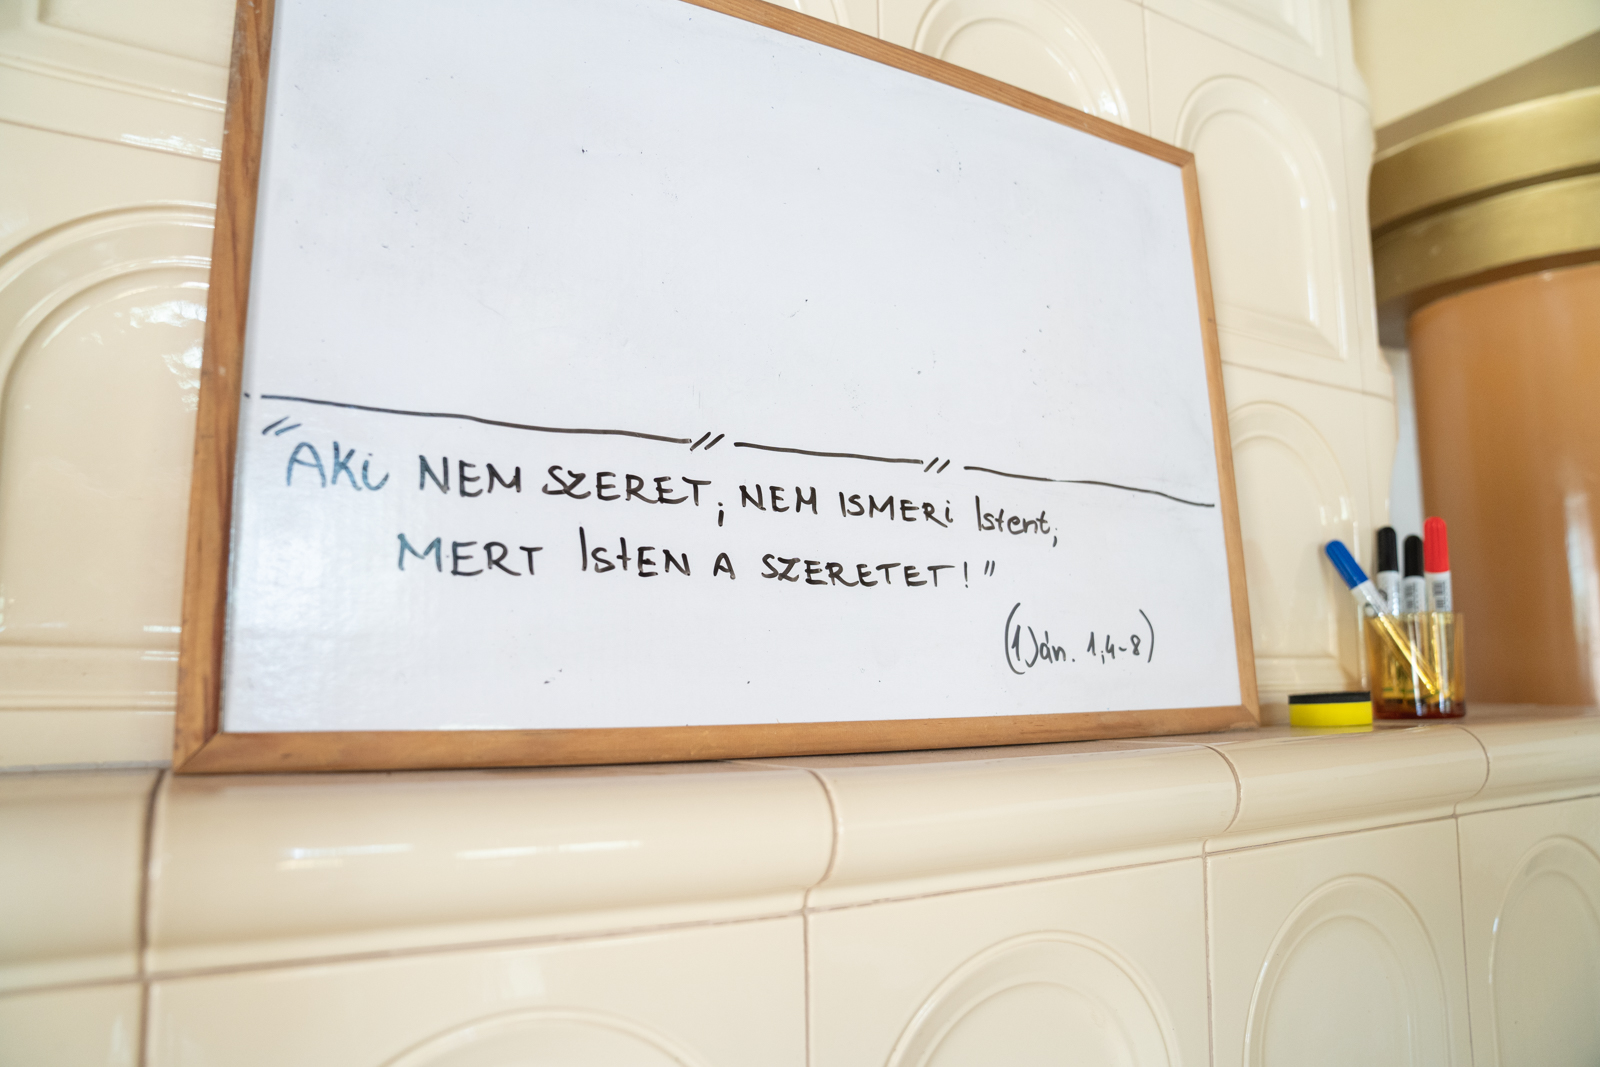 "AKi NEM SZERET; NEM ISMERi Istent;
MERT IstEN A SZERETET!"
(1Ján. 1,4-8)